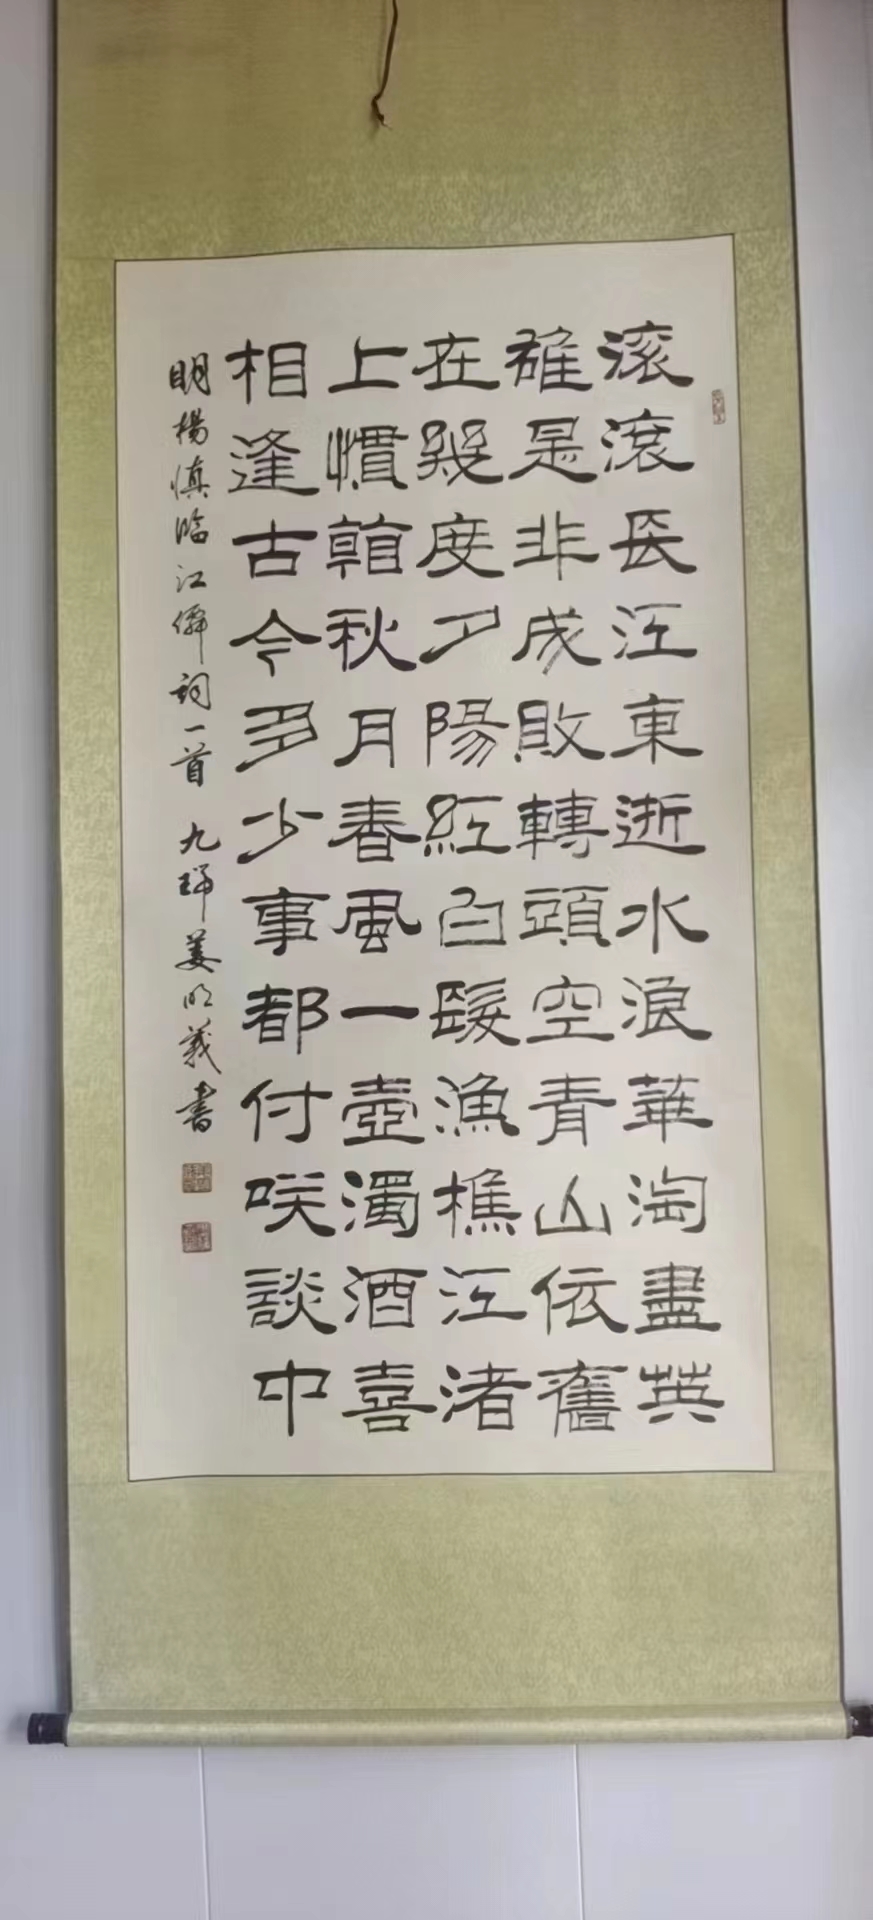 滚滾長江東逝水浪華淘盡英
雄是非成敗轉頭空青山依舊
在幾度夕陽紅白髮漁樵江渚
上慣看秋月春風一壺濁酒喜
相逢古今多少事都付咲談中
明楊慎臨江僊詞一首 九 姜明義書